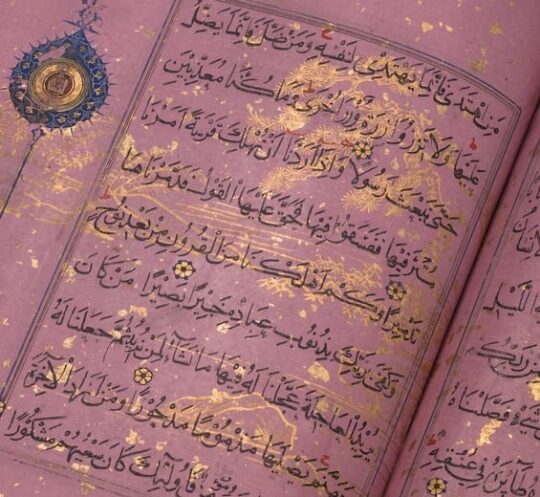 الانسان
اليل
من ربك
شيء فصلناه
طائره في عنقه
من اهتدى فانما يهتدي لنفسه ومن ضل فانما يضل
عليها ولا تزر وازرة وزر اخرى وما كنا معذبين
حتى نبعث رسولا واذا اردنا ان نهلك قرية امرنا
مترفيها ففسقوا فيها فحق عليها القول فدمرناها
تدميرا وكم اهلكنا من القرون من بعد نوح
وكفى بربك بذنوب عباده خبيرا بصيرا من كان
يريد العاجلة عجلنا له فيها ما نشآء لمن نريد ثم جعلنا له
جهنم يصليها مذموما مدحورا ومن اراد الآخرة
فاولئك كان سعيهم مشكورا